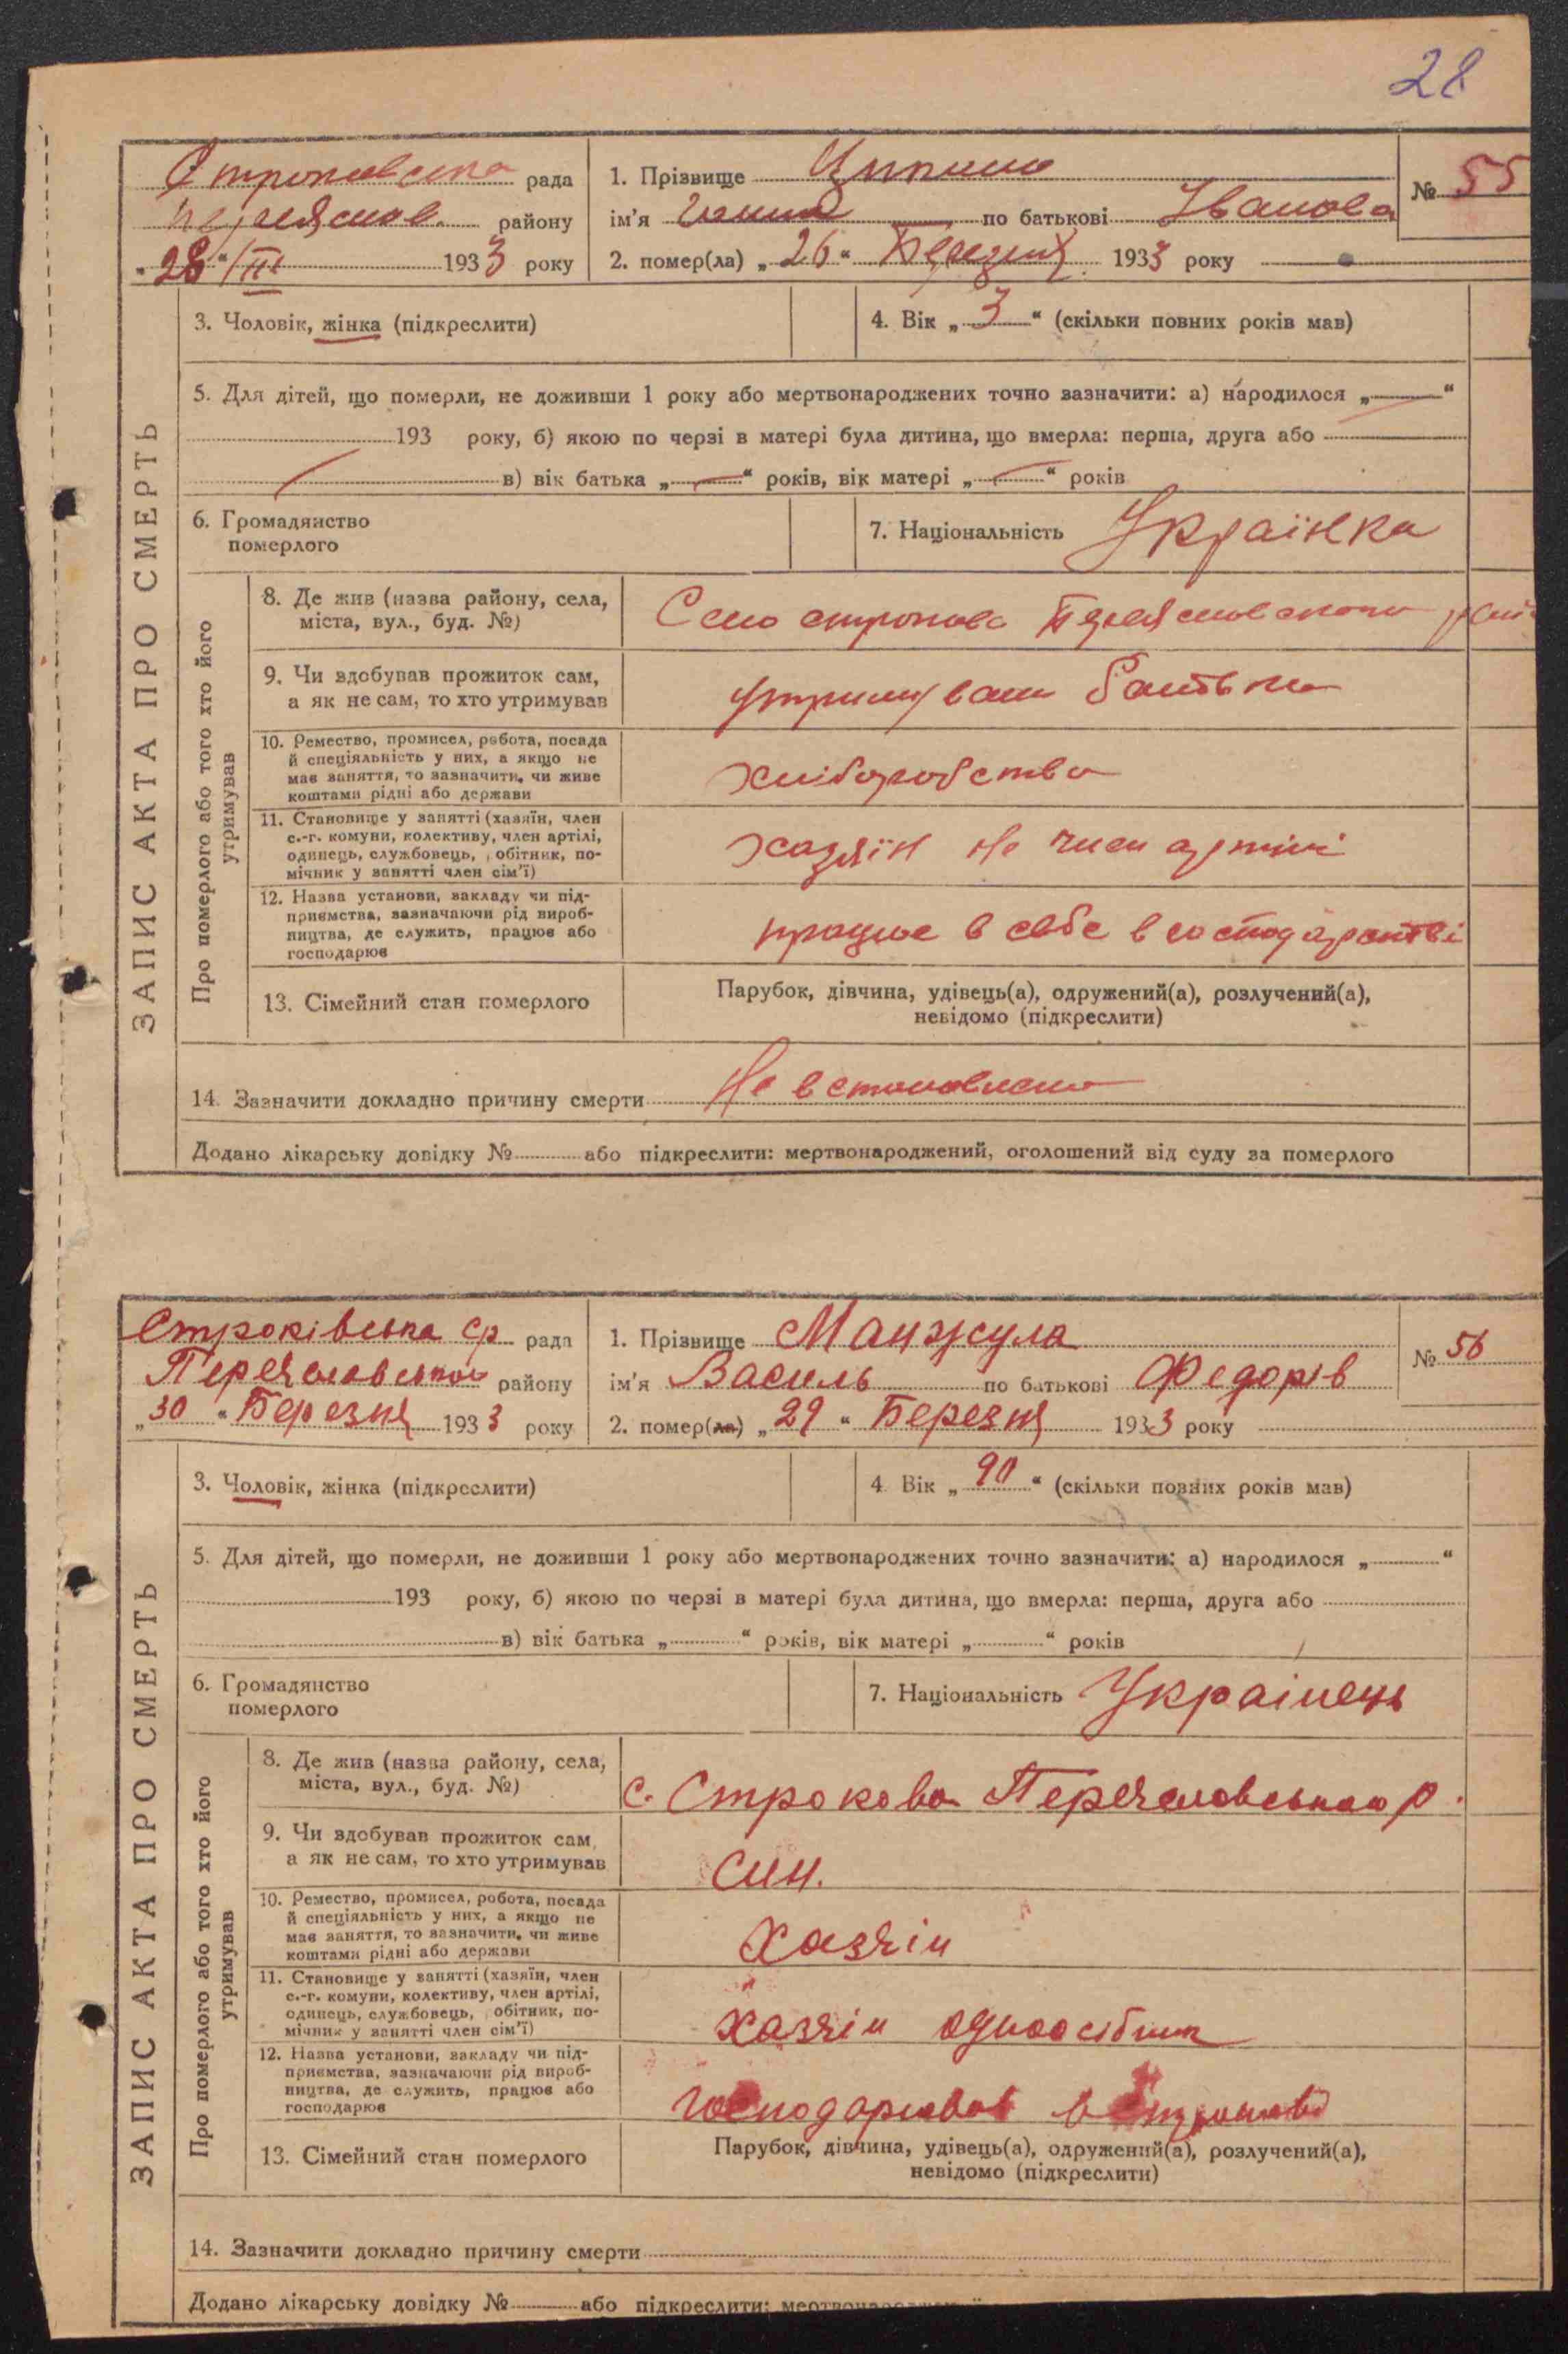 28
ЗАПИС АКТА ПРО СМЕРТЬ
Строковська рада
Переяслов. району
„28“/III 1933 року
1. Прізвище
ім’я по батькові Іванова
2. помер(ла) „26“ Березня 1933 року
№ 55
3. Чоловік, жінка (підкреслити)
4. Вік „3“ (скільки повних років мав)
5. Для дітей, що померли, не доживши 1 року або мертвонароджених точно зазначити: а) народилося „—“
193 року, б) якою по черзі в матері була дитина, що вмерла: перша, друга або
в) вік батька „—“ років, вік матері „—“ років
6. Громадянство
померлого
7. Національність Українка
Про померлого або того хто його
утримував
8. Де жив (назва району, села,
міста, вул., буд. №)
Село Строкова Переясловского рай
9. Чи здобував прожиток сам,
а як не сам, то хто утримував
утримували батьки
10. Ремество, промисел, робота, посада
й спеціяльність у них, а якщо не
має заняття, то зазначити, чи живе
коштами рідні або держави
хліборобство
11. Становище у занятті (хазяїн, член
с.-г. комуни, колективу, член артілі,
одинець, службовець, обітник, по-
мічник у занятті член сім’ї)
хазяїн не член артілі
12. Назва установи, закладу чи під-
приємства, зазначаючи рід вироб-
ництва, де служить, працює або
господарює
працює в себе в господарстві
13. Сімейний стан померлого
Парубок, дівчина, удівець(а), одружений(а), розлучений(а),
невідомо (підкреслити)
14. Зазначити докладно причину смерти Не встановлено
Додано лікарську довідку № або підкреслити: мертвонароджений, оголошений від суду за померлого
ЗАПИС АКТА ПРО СМЕРТЬ
Строківська ср рада
Переяславської району
„30“ Березня 1933 року
1. Прізвище Манжула
ім’я Василь по батькові Федорів
2. помер(ла) „29“ Березня 1933 року
№ 56
3. Чоловік, жінка (підкреслити)
4. Вік „90“ (скільки повних років мав)
5. Для дітей, що померли, не доживши 1 року або мертвонароджених точно зазначити: а) народилося „ “
193 року, б) якою по черзі в матері була дитина, що вмерла: перша, друга або
в) вік батька „ “ років, вік матері „ “ років
6. Громадянство
померлого
7. Національність Українець
Про померлого або того хто його
утримував
8. Де жив (назва району, села,
міста, вул., буд. №)
с. Строкова Переяславського р.
9. Чи здобував прожиток сам,
а як не сам, то хто утримував
син.
10. Ремество, промисел, робота, посада
й спеціяльність у них, а якщо не
має заняття, то зазначити, чи живе
коштами рідні або держави
Хазяін
11. Становище у занятті (хазяїн, член
с.-г. комуни, колективу, член артілі,
одинець, службовець, обітник, по-
мічник у занятті член сім’ї)
Хазяін одноосібник
12. Назва установи, закладу чи під-
приємства, зазначаючи рід вироб-
ництва, де служить, працює або
господарює
господарював в Строкові
13. Сімейний стан померлого
Парубок, дівчина, удівець(а), одружений(а), розлучений(а),
невідомо (підкреслити)
14. Зазначити докладно причину смерти
Додано лікарську довідку № або підкреслити: